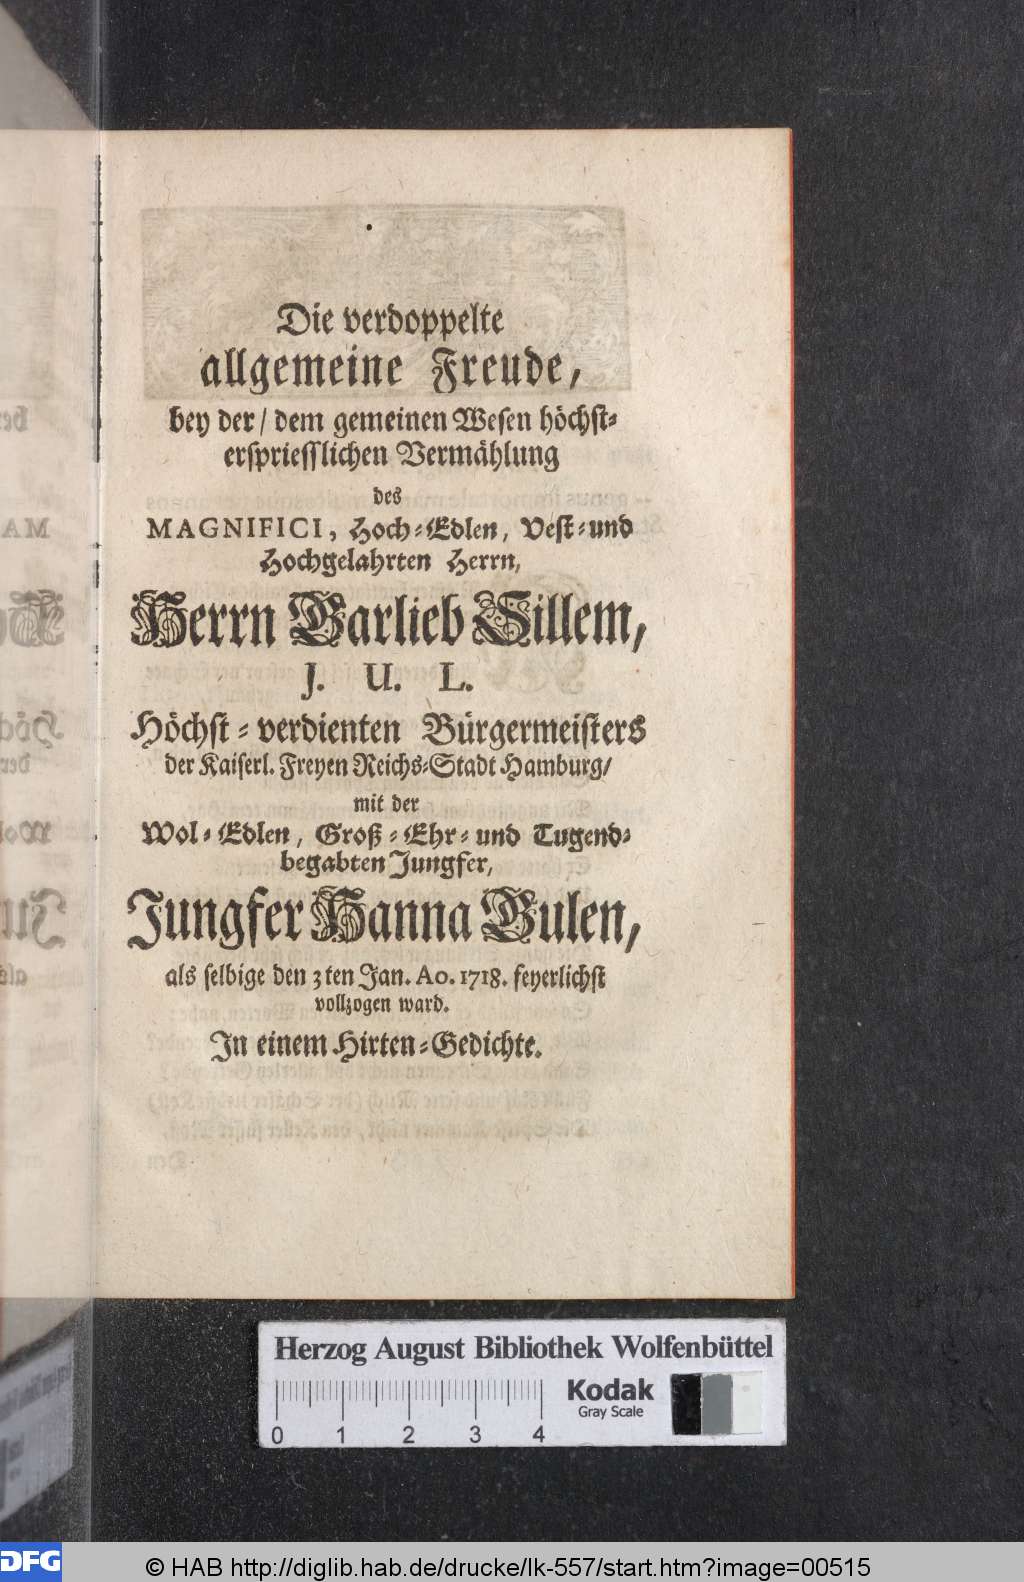 Die verdoppelte
allgemeine Freude,
bey der / dem gemeinen Wesen höchst-
erspriesslichen Vermählung
des
MAGNIFICI, Hoch-Edlen, Vest-und
Hochgelahrten Herrn,
Herrn Garlieb Sillem,
J. U. L.
Höchst-verdienten Bürgermeisters
der Kaiserl. Freyen Reichs-Stadt Hamburg/
mit der
Wol-Edlen, Groß-Ehr-und Tugend-
begabten Jungfer,
Jungfer Hanna Bulen,
als selbige den 3ten Jan. Ao. 1718. feyerlichst
vollzogen ward.
In einem Hirten-Gedichte.
Herzog August Bibliothek Wolfenbüttel
Kodak
Gray Scale
0 1 2 3 4
DFG
© HAB http://diglib.hab.de/drucke/lk-557/start.htm?image=00515